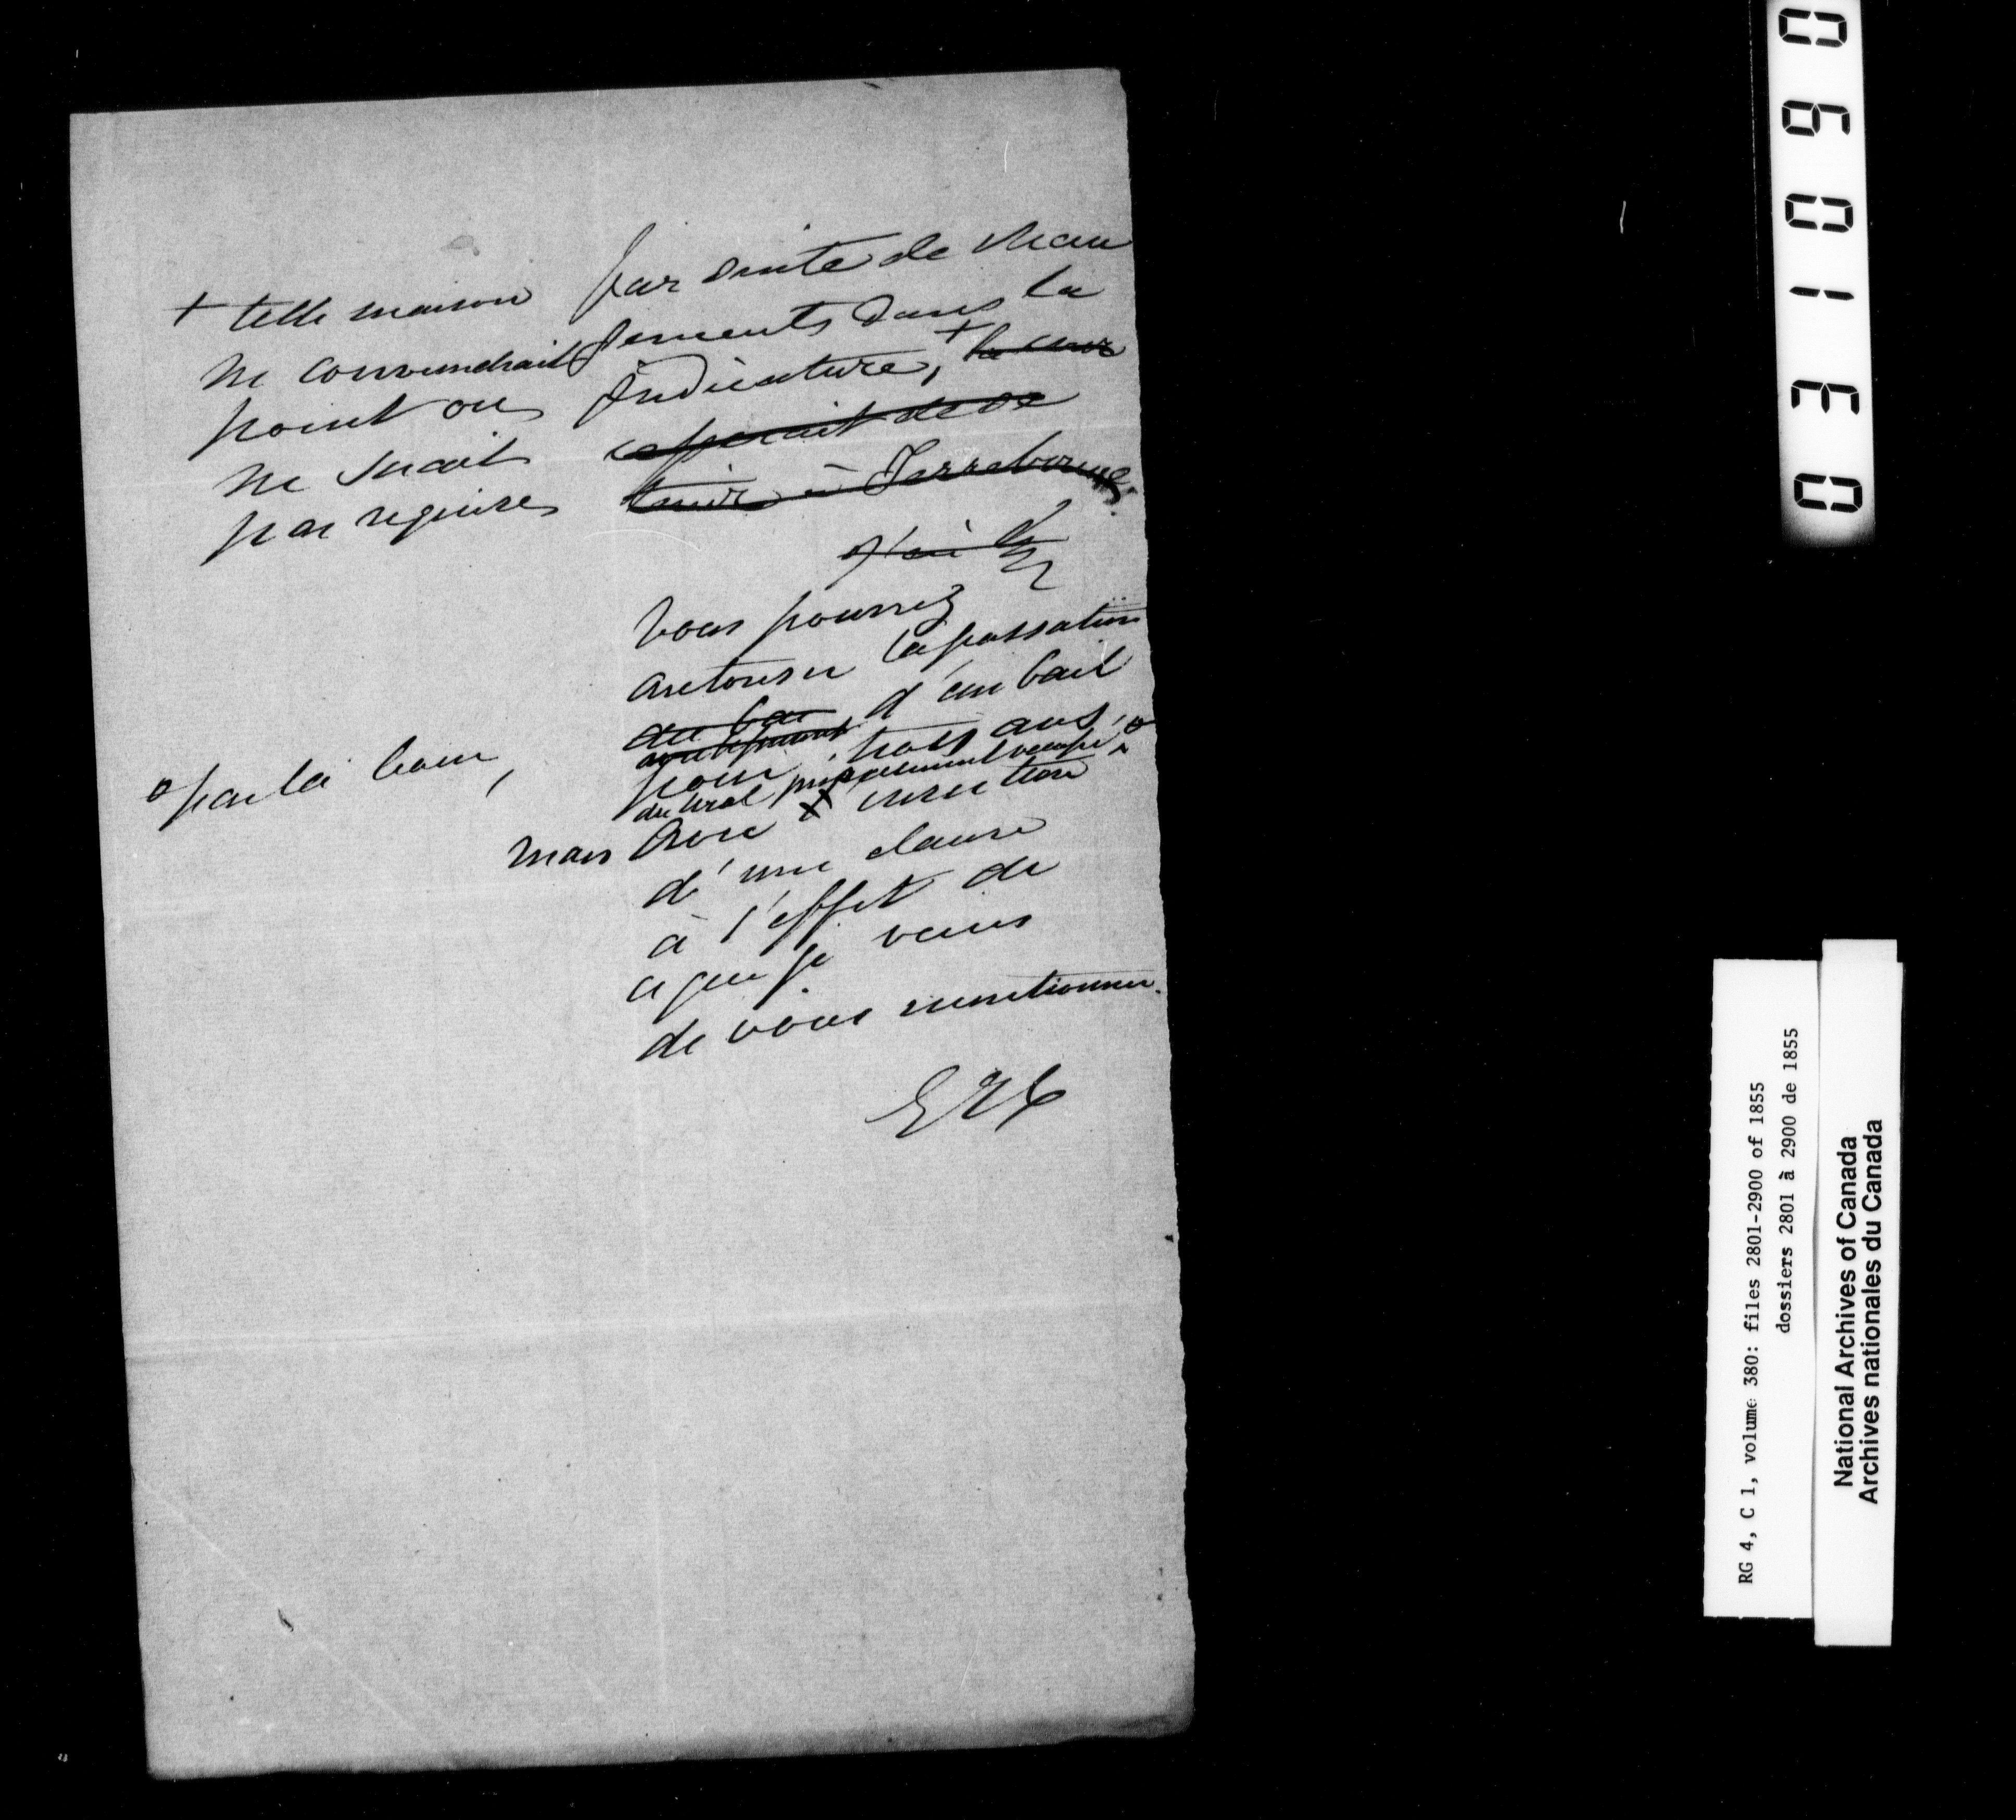 par suite de chan
gements dans la
Judicature, + la cour
cesserait de se
tenir à Terrebonne.
+ telle maison
ne conviendrait
point ou
ne serait
pas requise
J'ai
Vous pourrez
autoriser la passation
du bai d'un bail
pour trois ans,
du local présentement occupé
o par la cour,
mais avec insertion
d'une clause
à l'effet de
ce que je viens
de vous mentionner.
03109 0
RG 4, C 1, volume 380: files 2801-2900 of 1855
dossiers 2801 à 2900 de 1855
National Archives of Canada
Archives nationales du Canada